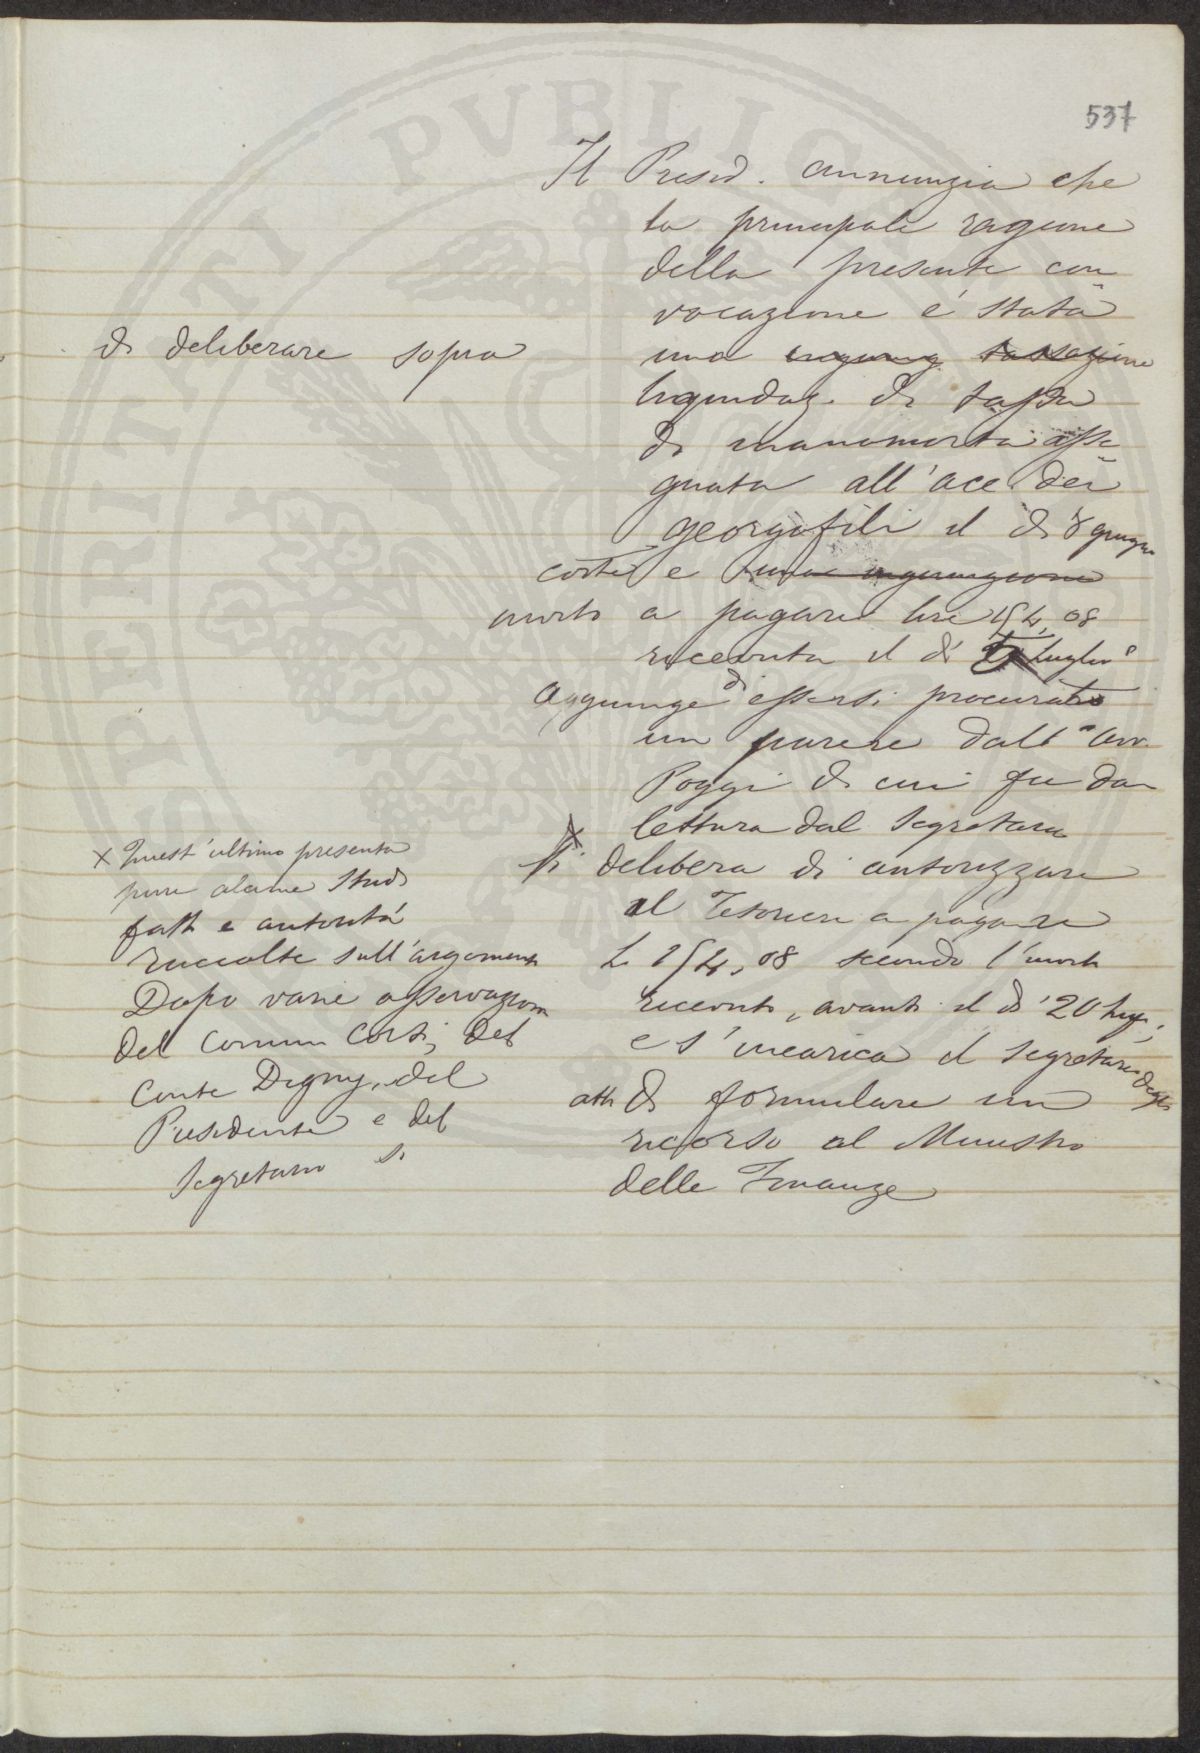 537
Il Presid. annunzia che
la principale ragione
della presente con
vocazione è stata
di deliberare sopra
una ingiunz. tassazione
liquidaz. di tassa
di manomorta asse
gnata all'acc dei
georgofili il dì 8 giugno
corte e una ingiunzione
invito a pagare lire 154,08
ricevuta il dì Luglio
Aggiunge di essersi procurato
un parere dall' Avv.
Poggi di cui fu da
lettura dal Segretario
× Si delibera di autorizzare
il Tesoriere a pagare
L. 154,08 secondo l'invito
ricevuto, avanti il dì 20 lug;
e s'incarica il Segretario degli
atti di formulare un
ricorso al Ministro
delle Finanze
× Quest'ultimo presenta
pure alcune Studi
fatti e autorità
raccolte sull'argomento
Dopo varie osservazioni
del Comm Corsi, del
Conte Digny, del
Presidente e del
Segretario si
PVBLIC